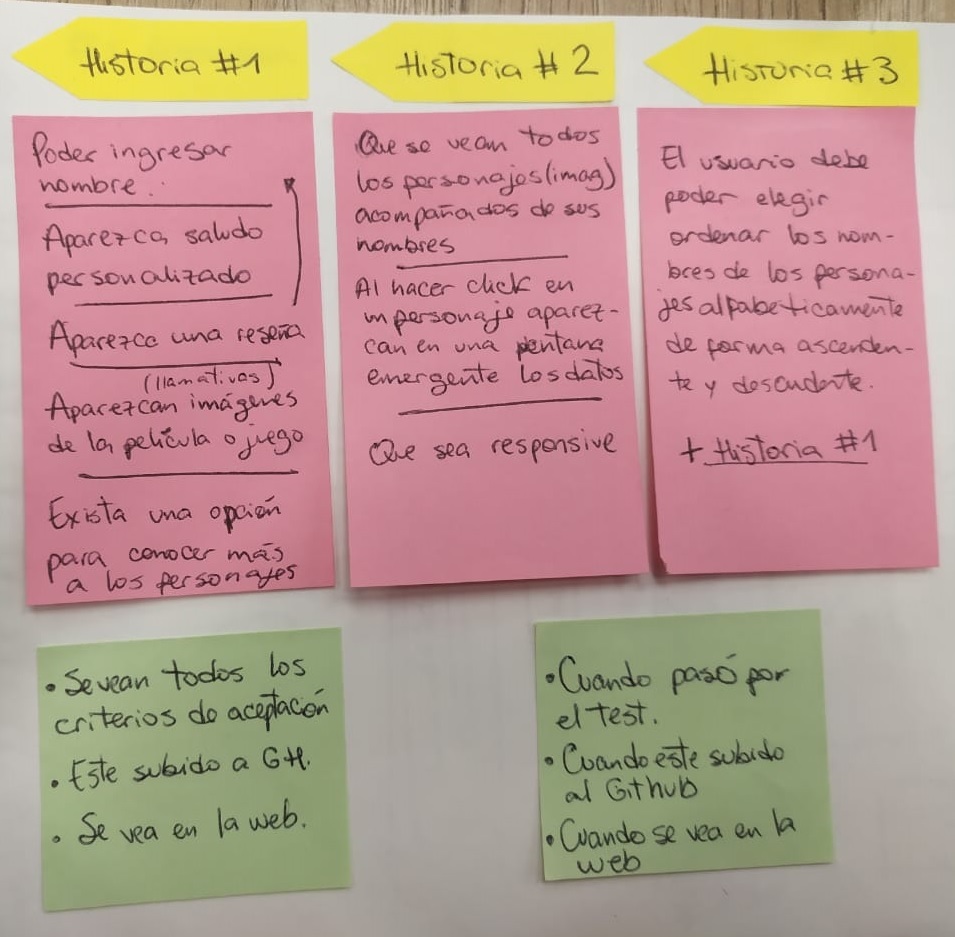 Historia #1
Poder ingresar
nombre.
Aparezca saludo
personalizado
Aparezca una reseña
(llamativas)
Aparezcan imágenes
de la película o juego
Exista una opción
para conocer más
a los personajes
Historia #2
Que se vean todos
los personajes (imag)
acompañados de sus
nombres
Al hacer click en
un personaje aparez-
can en una ventana
emergente los datos
Que sea responsive
Historia #3
El usuario debe
poder elegir
ordenar los nom-
bres de los persona-
jes alfabeticamente
de forma ascenden-
te y descendente.
+ Historia #1
• Se vean todos los
criterios de aceptación
• Este subido a GH.
• Se vea en la web.
• Cuando pasó por
el test.
• Cuando este subido
al Github
• Cuando se vea en la
web